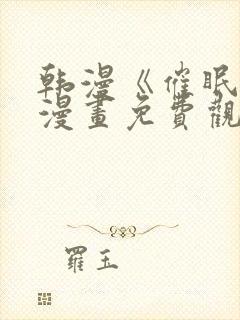 韩漫《催眠
漫畫免費觀
羅玉